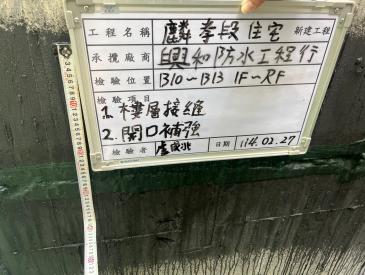 工程名稱 麟孝段住宅 新建工程
承攬廠商 興和防水工程行
檢驗位置 B10~B13 1F~RF
檢驗項目
1. 樓層接縫
2. 開口補強
檢驗者 日期 114.02.27